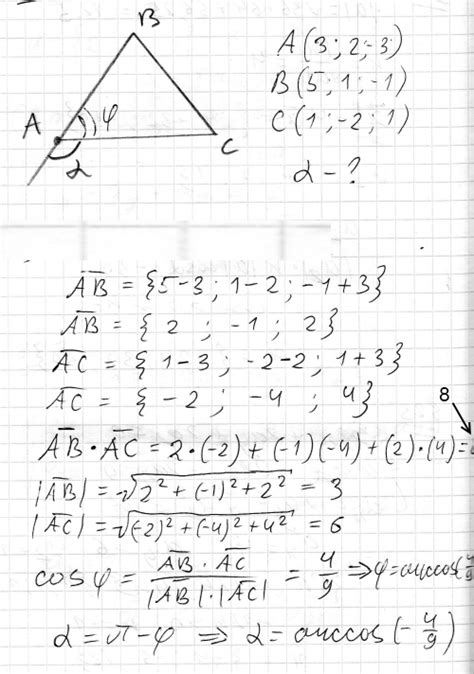 B
A φ C
α
A(3; 2; -3)
B(5; 1; -1)
C(1; -2; 1)
α - ?
A̅B̅ = {5-3; 1-2; -1+3}
A̅B̅ = {2; -1; 2}
A̅C̅ = {1-3; -2-2; 1+3}
A̅C̅ = {-2; -4; 4}
8
A̅B̅ · A̅C̅ = 2·(-2)+(-1)(-4)+(2)·(4)=
|A̅B̅| = √(2²+(-1)²+2²) = 3
|A̅C̅| = √((-2)²+(-4)²+4²) = 6
cos φ = A̅B̅ · A̅C̅ / |A̅B̅|·|A̅C̅| = 4/9 ⇒ φ=arccos(4/9
α = π - φ ⇒ α = arccos(-4/9)